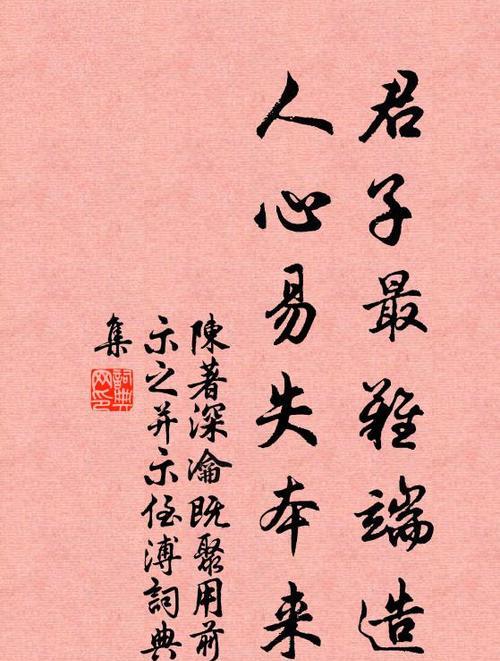 君子最難端造
人心易失本来
陳著深瀹既聚用前
示之并示侄溥詞典
集
詞典網印